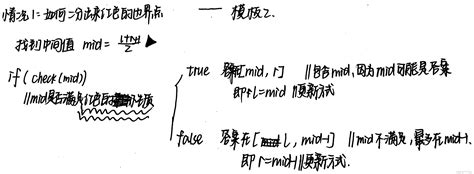 情况1=如何二分出来红色的边界点 —— 模板2.
找到中间值 mid = (l+r+1)/2
if (check(mid))
//mid是否满足红色的性质
true 答案在[mid, r] //包含mid,因为mid可能是答案
即 L=mid //更新方式
false 答案在[L, mid-1] //mid不满足,最多在mid-1.
即 r=mid-1 //更新方式.